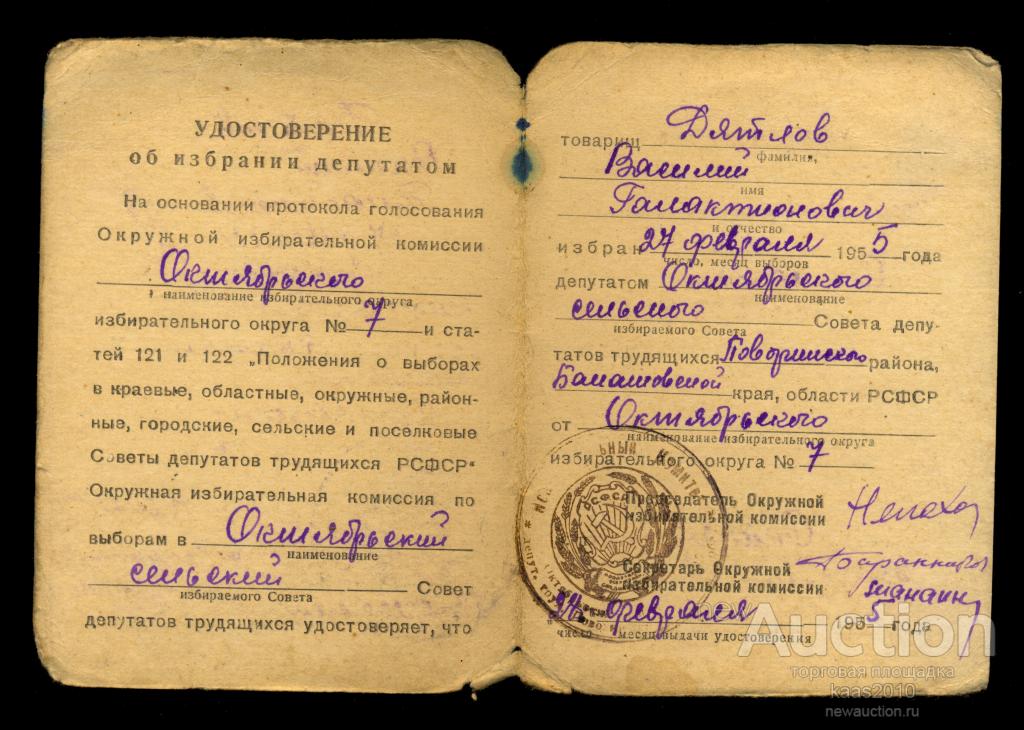 УДОСТОВЕРЕНИЕ
об избрании депутатом
На основании протокола голосования
Окружной избирательной комиссии
Октябрьского
наименование избирательного округа
избирательного округа № 7 и ста-
тей 121 и 122 „Положения о выборах
в краевые, областные, окружные, район-
ные, городские, сельские и поселковые
Советы депутатов трудящихся РСФСР"
Окружная избирательная комиссия по
выборам в Октябрьский
наименование
сельский Совет
избираемого Совета
депутатов трудящихся удостоверяет, что
товарищ Дятлов
фамилия,
Василий
имя
Галактионович
и отчество
избран 27 февраля 1955 года
число, месяц выборов
депутатом Октябрьского
наименование
сельского Совета депу-
избираемого Совета
татов трудящихся Поворинского района,
Балашовской края, области РСФСР
от Октябрьского
наименование избирательного округа
избирательного округа № 7
Председатель Окружной
избирательной комиссии
Секретарь Окружной
избирательной комиссии
февраля 1955 года
число месяц выдачи удостоверения
РСФСР
Auction
торговая площадка
kaas2010
newauction.ru